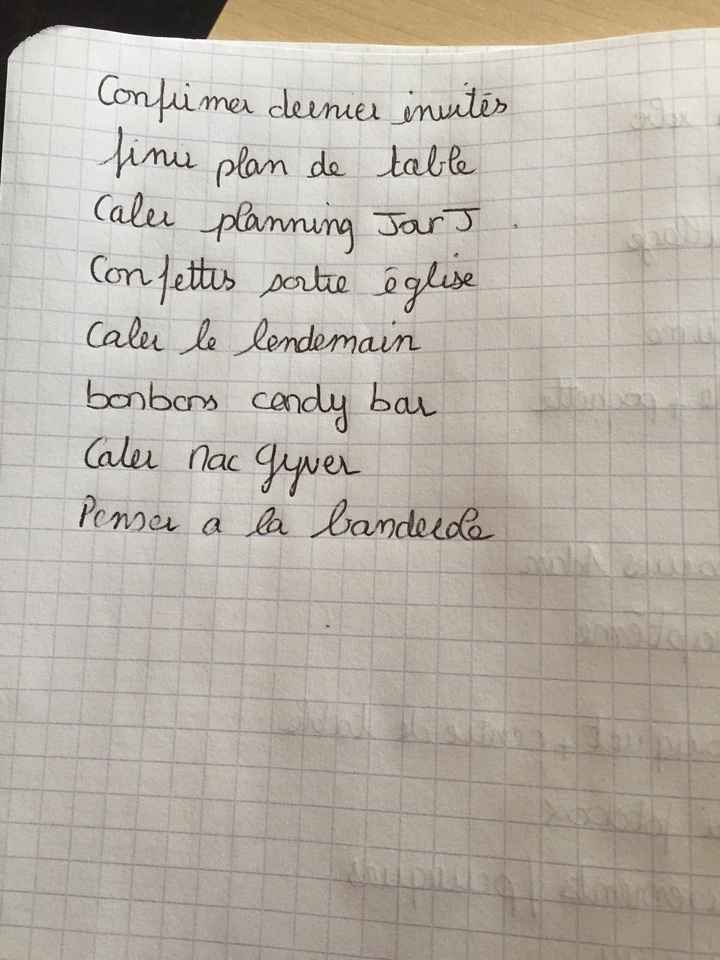 Confirmer dernier invités
finir plan de table
Caler planning JarJ.
Confettis sortie église
Caler le lendemain
bonbons candy bar
Caler Mac Gyver
Penser a la banderole